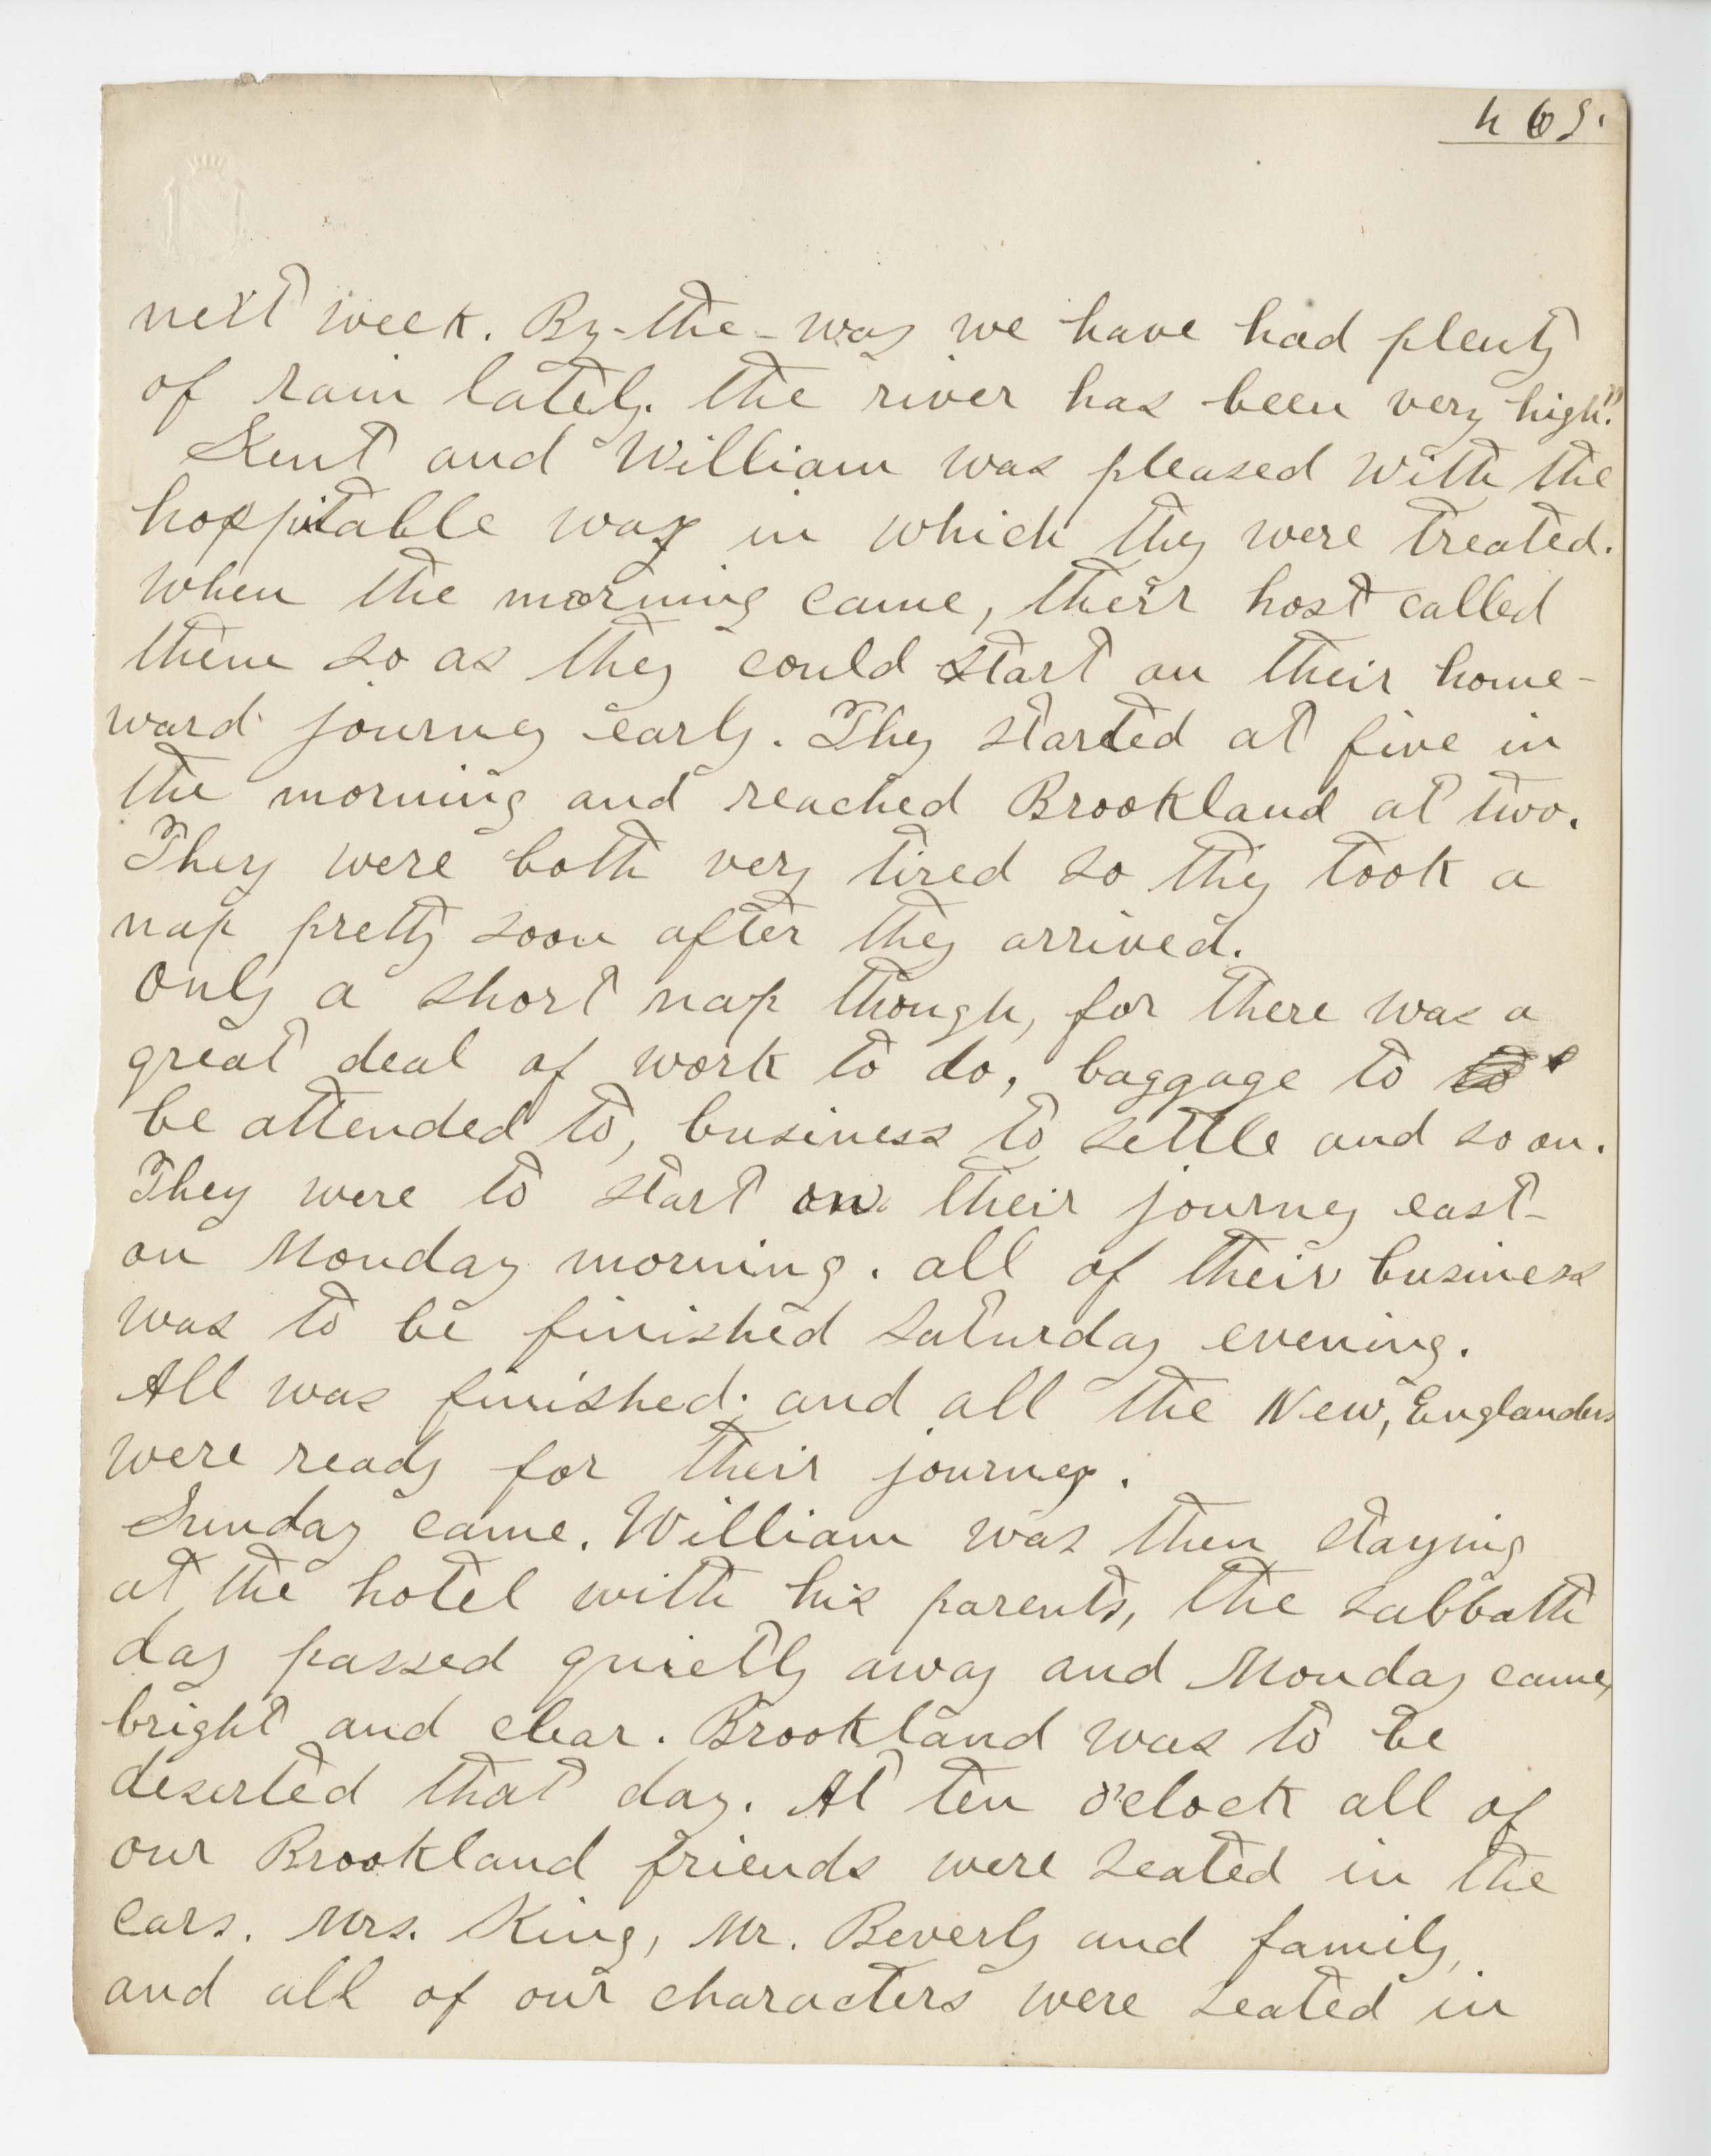 465.
next week. By-the-way we have had plenty
of rain lately. the river has been very high."
Kent and William was pleased with the
hospitable way in which they were treated.
When the morning came, their host called
them so as they could start on their home-
ward journey early. They started at five in
the morning and reached Brookland at two.
They were both very tired so they took a
nap pretty soon after they arrived.
Only a short nap though, for there was a
great deal of work to do, baggage to to
be attended to, business to settle and so on.
They were to start on their journey east-
on Monday morning. all of their business
was to be finished Saturday evening.
All was finished. and all the New, Englanders
were ready for their journey.
Sunday came. William was then staying
at the hotel with his parents, the sabbath
day passed quietly away and Monday came,
bright and clear. Brookland was to be
deserted that day. At ten o'clock all of
our Brookland friends were seated in the
cars. Mrs. King, Mr. Beverly and family,
and all of our characters were seated in